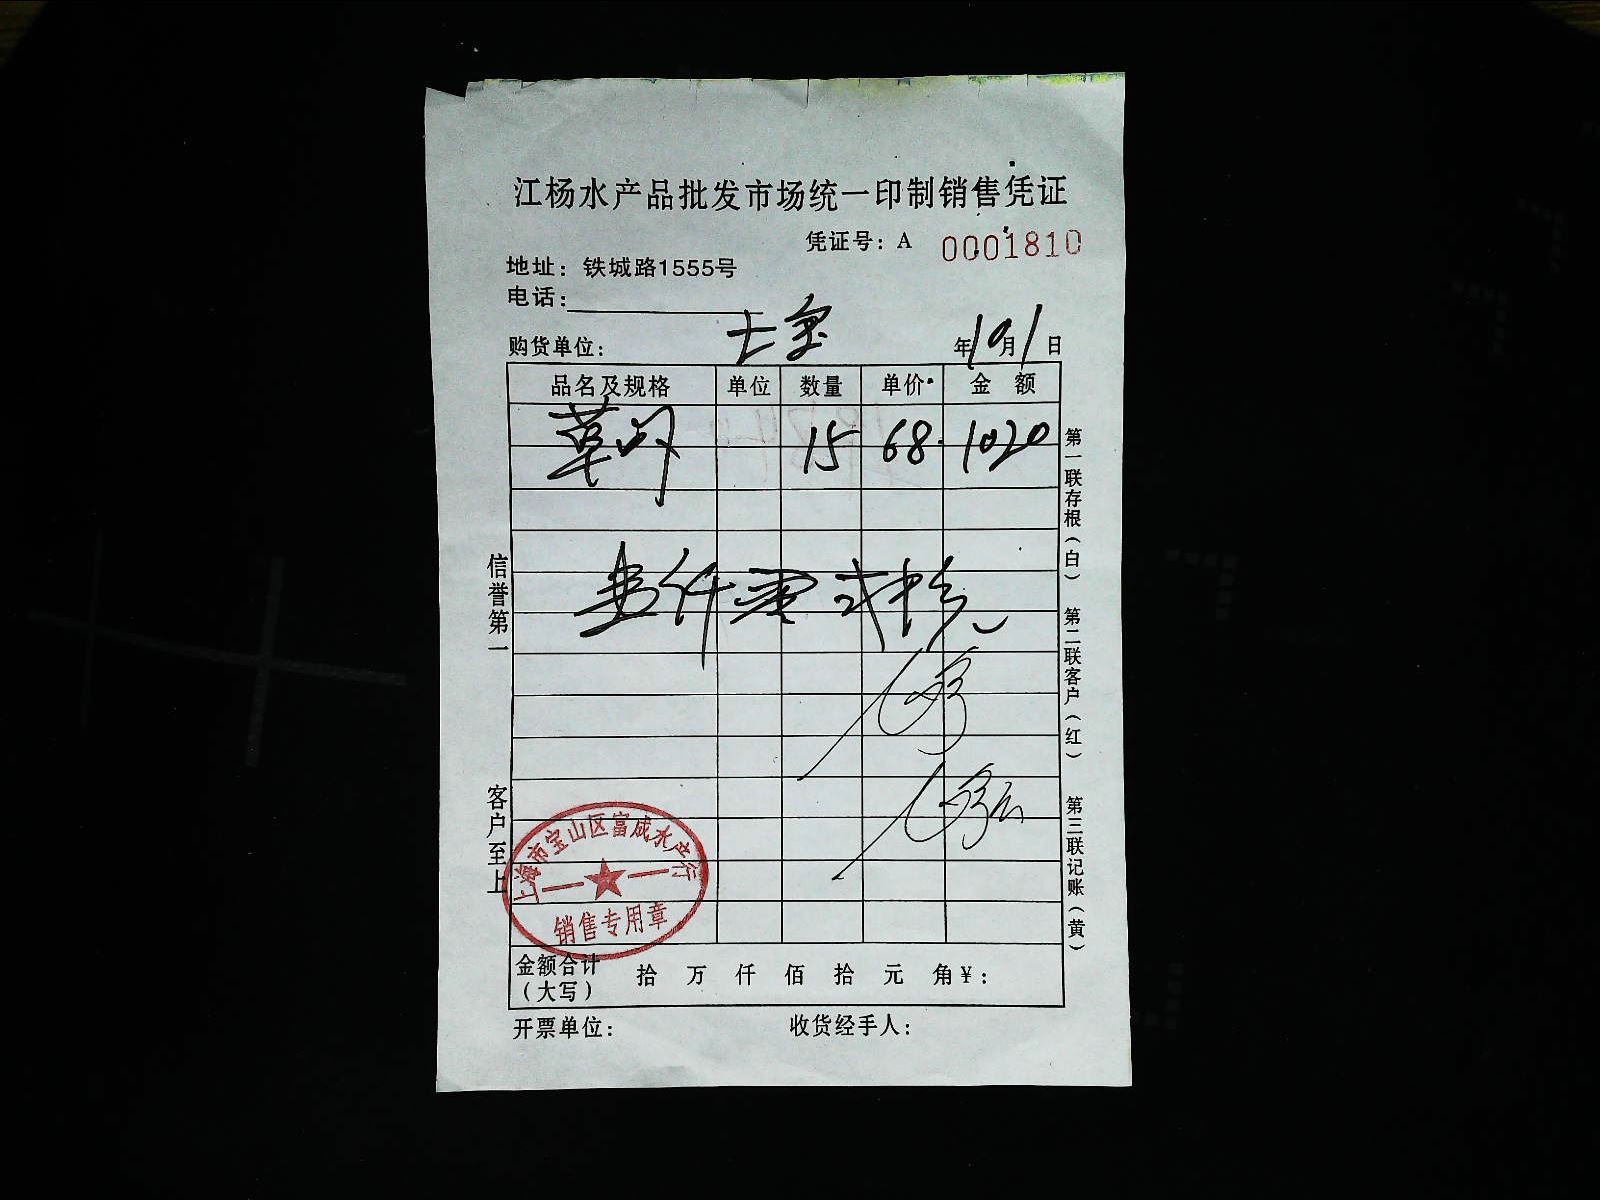 江杨水产品批发市场统一印制销售凭证
凭证号：A 0001810
地址：铁城路1555号
电话：
购货单位： 年10月1日
品名及规格 单位 数量 单价 金额
草 15 68 1020
壹仟零贰拾元
信誉第一
客户至上
第一联存根（白）
第二联客户（红）
第三联记账（黄）
上海市宝山区富成水产行
销售专用章
金额合计（大写） 拾 万 仟 佰 拾 元 角 ¥：
开票单位： 收货经手人：